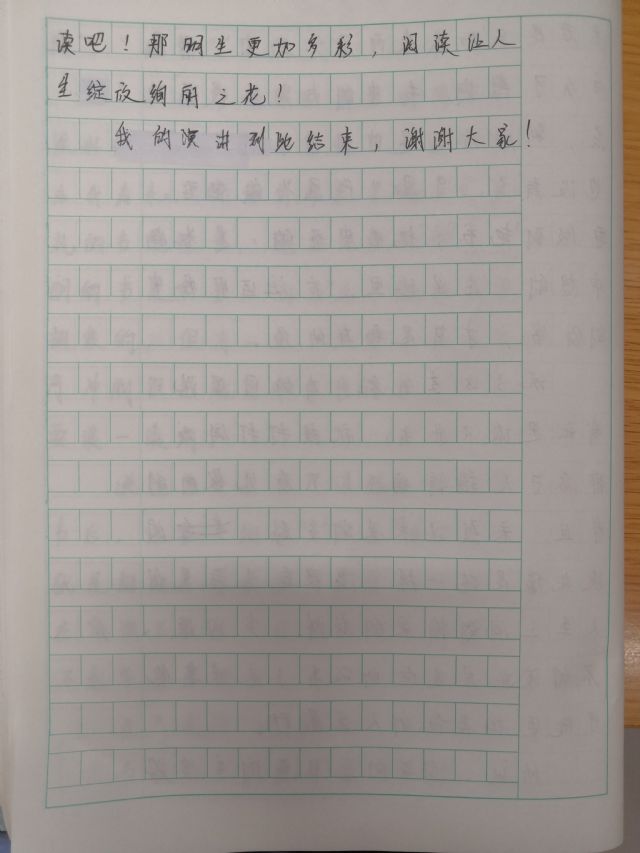 读吧！那明生更加多彩，阅读让人
生绽放绚丽之花！
我的演讲到此结束，谢谢大家！